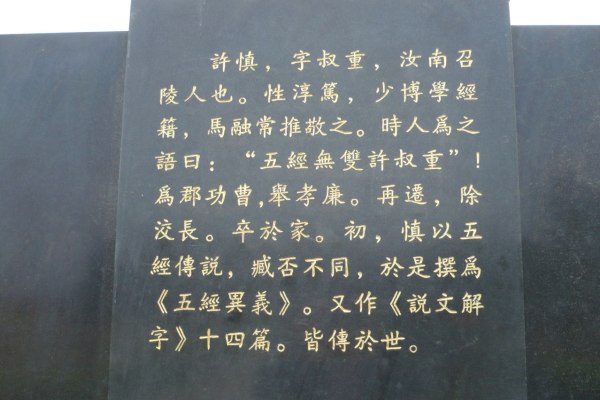 許慎，字叔重，汝南召
陵人也。性淳篤，少博學經
籍，馬融常推敬之。時人爲之
語曰：“五經無雙許叔重”！
爲郡功曹，舉孝廉。再遷，除
洨長。卒於家。初，慎以五
經傳説，臧否不同，於是撰爲
《五經異義》。又作《説文解
字》十四篇。皆傳於世。